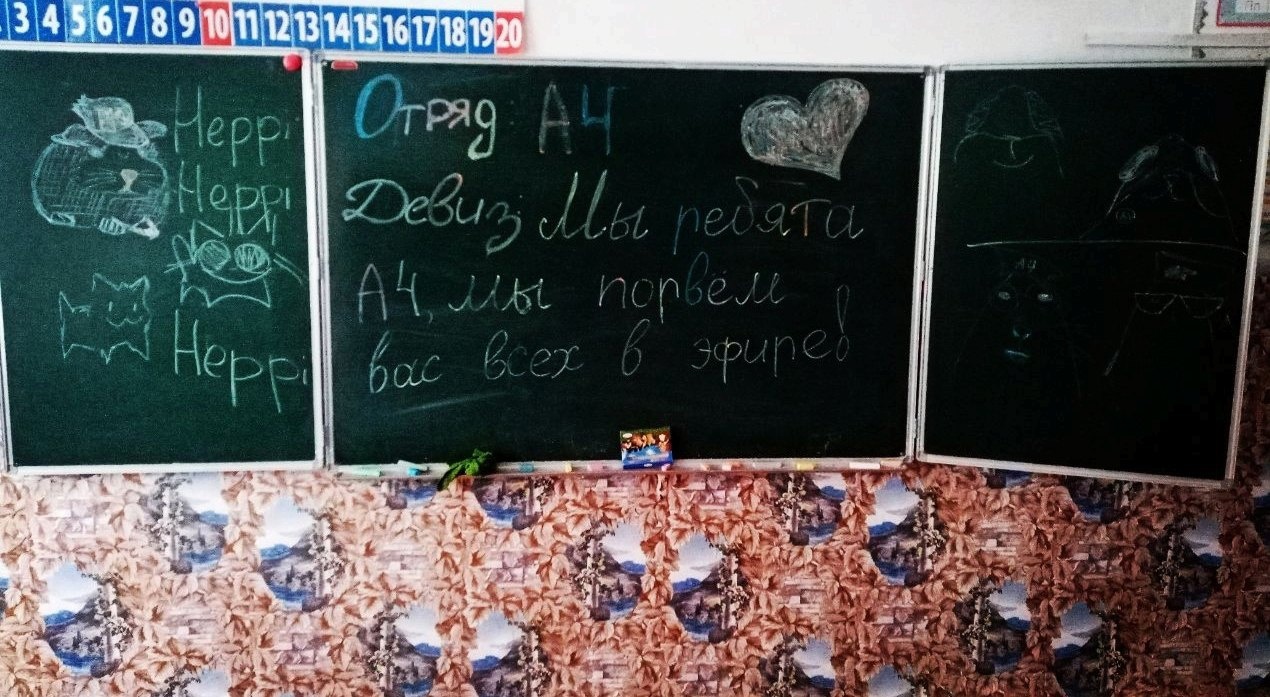 3 4 5 6 7 8 9 10 11 12 13 14 15 16 17 18 19 20
Heppi
Heppi
Heppi
Отряд: А4
Девиз: Мы ребята
А4, мы порвём
вас всех в эфире!